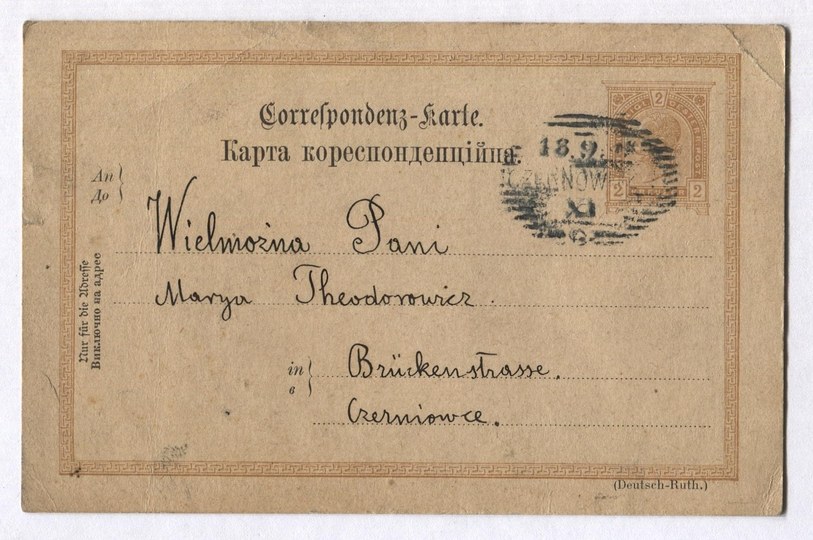 Correspondenz-Karte.
Карта кореспонденційна.
2
18.9.
CZERNOW
XI
2 2
An
До
Wielmożna Pani
Marya Theodorowicz.
Nur für die Adresse
Виключно на адрес
in
в
Brückenstrasse.
Czerniowce.
(Deutsch-Ruth.)